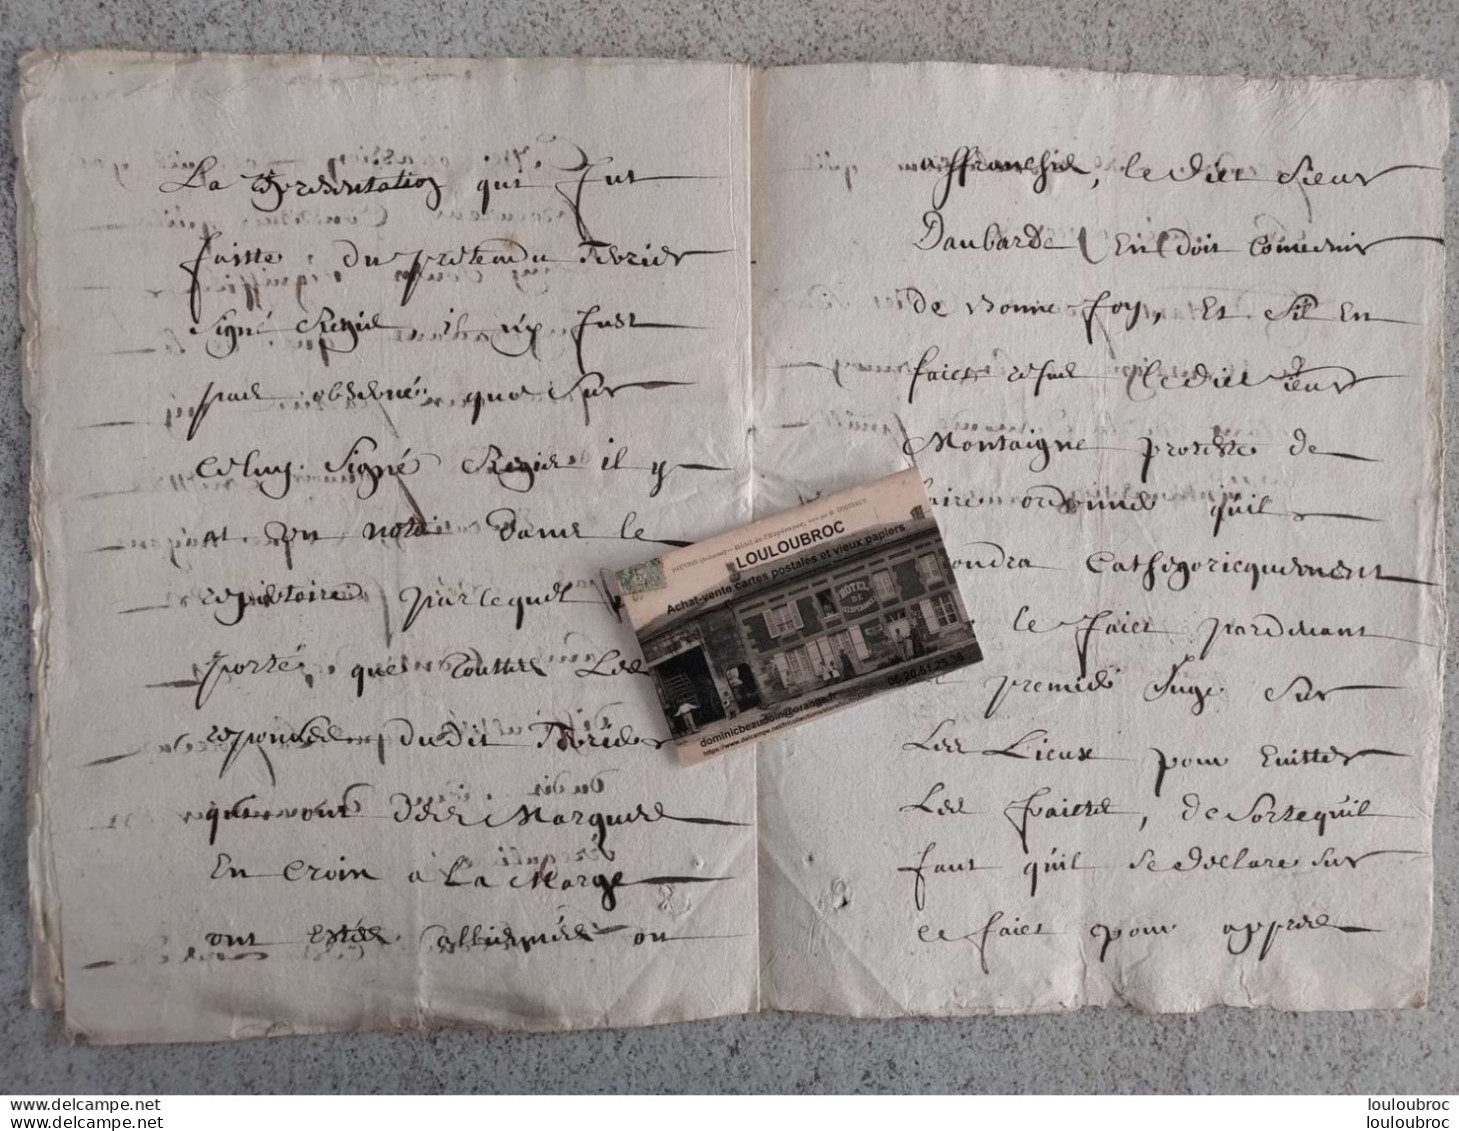 La representation qui fut
faitte, du pretendu Terrier
signé Regis il ny fust
pas observé que sur
celuy signé Regis il y
at un notte dans le
repertoire par lequel
porté que touttes Les
reponses dudit Terrier
qui ont Des Marques
En Croix a La Marge
ont estés ou
affranchis, le dict Sieur
Daubarde En doit convenir
de Bonne foy, Et Sil En
faict refus le dict Sieur
Montaigne proteste de
faire ordonner quil
Cathegoricquement
le faict pardevant
premier Juge sur
Les Lieux pour Evitter
Les fraittes, de Sorte quil
faut quil se declare sur
ce faict pour apprés
LOULOUBROC
Achat-vente cartes postales et vieux papiers
HÔTEL
DE
06.20.51.23.36
dominicbeaudoin@orange.fr
louloubroc
louloubroc